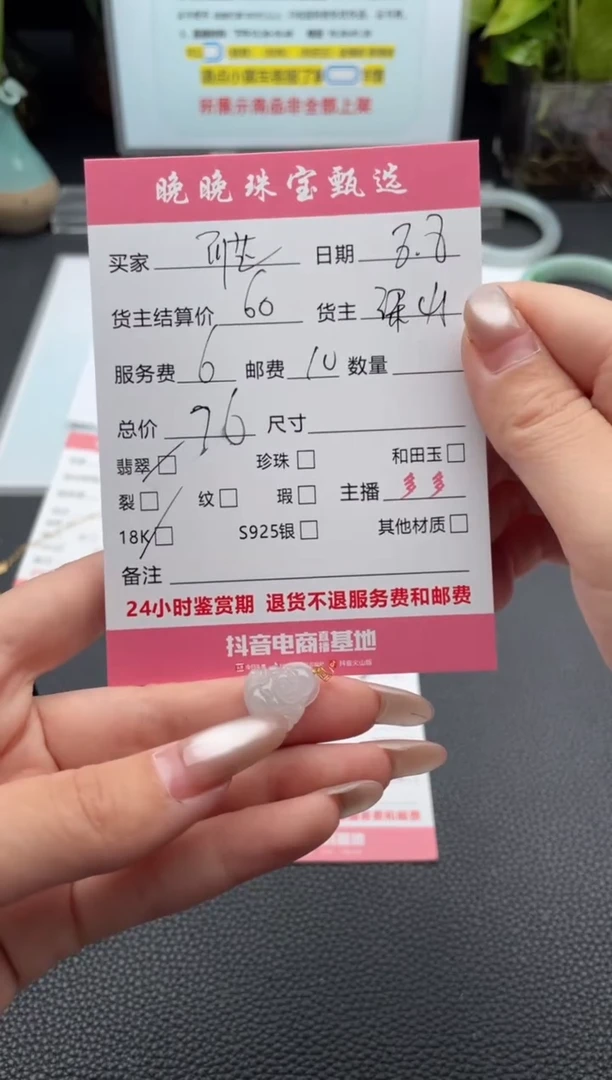 好展示商品非全部上架
晚晚珠宝甄选
买家 日期 3.8
货主结算价 60 货主
服务费 6 邮费 10 数量
总价 76 尺寸
翡翠 珍珠 和田玉
裂 纹 瑕 主播 多多
18K S925银 其他材质
备注
24小时鉴赏期 退货不退服务费和邮费
抖音电商直播基地
抖音火山版